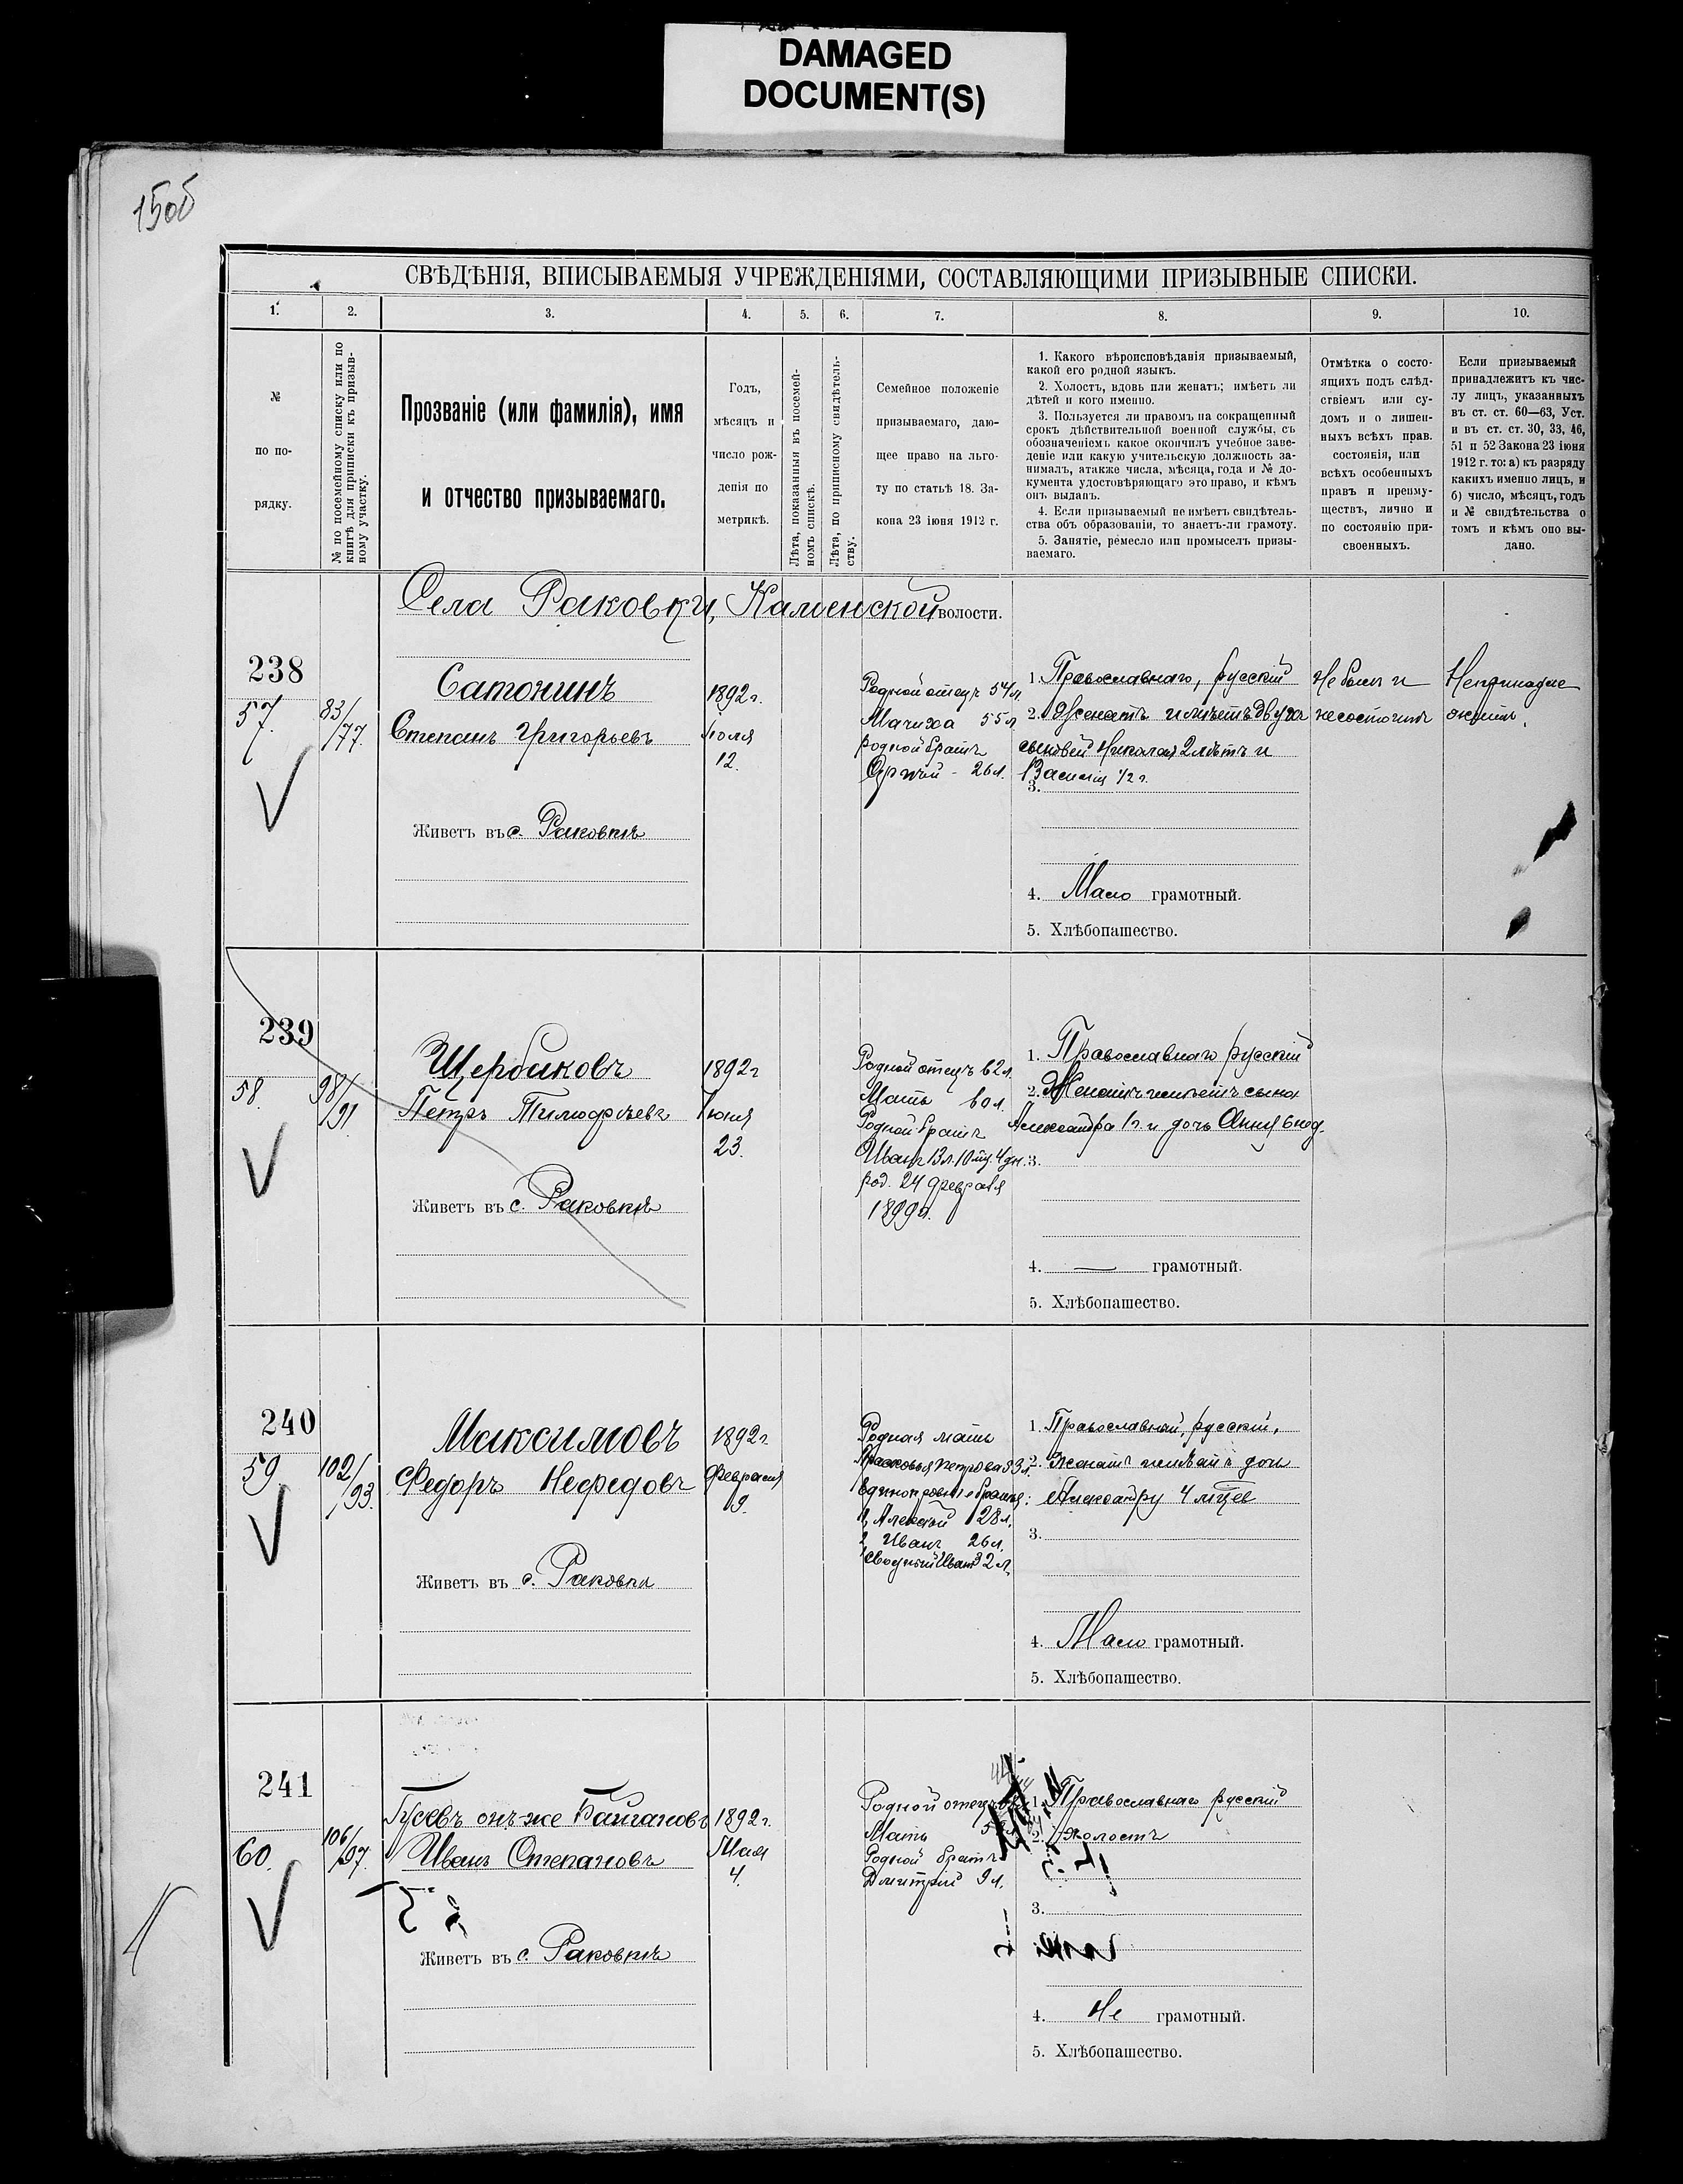 DAMAGED
DOCUMENT(S)
150б
СВѢДѢНІЯ, ВПИСЫВАЕМЫЯ УЧРЕЖДЕНІЯМИ, СОСТАВЛЯЮЩИМИ ПРИЗЫВНЫЕ СПИСКИ.
1. 2. 3. 4. 5. 6. 7. 8. 9. 10.
№
по по-
рядку.
№ по посемейному списку или по
книгѣ для приписки къ призыв-
ному участку.
Прозваніе (или фамилія), имя
и отчество призываемаго.
Годъ,
мѣсяцъ и
число рож-
денія по
метрикѣ.
Лѣта, показанныя въ посемей-
номъ спискѣ.
Лѣта, по приписному свидѣтель-
ству.
Семейное положеніе
призываемаго, даю-
щее право на льго-
ту по статьѣ 18. За-
кона 23 іюня 1912 г.
1. Какого вѣроисповѣданія призываемый,
какой его родной языкъ.
2. Холостъ, вдовъ или женатъ; имѣетъ ли
дѣтей и кого именно.
3. Пользуется ли правомъ на сокращенный
срокъ дѣйствительной военной службы, съ
обозначеніемъ какое окончилъ учебное заве-
деніе или какую учительскую должность за-
нималъ, атакже числа, мѣсяца, года и № до-
кумента удостовѣряющаго это право, и кѣмъ
онъ выданъ.
4. Если призываемый не имѣетъ свидѣтель-
ства объ образованіи, то знаетъ-ли грамоту.
5. Занятіе, ремесло или промыселъ призы-
ваемаго.
Отмѣтка о состо-
ящихъ подъ слѣд-
ствіемъ или су-
домъ и о лишен-
ныхъ всѣхъ прав.
состоянія, или
всѣхъ особенныхъ
правъ и преиму-
ществъ, лично и
по состоянію при-
своенныхъ.
Если призываемый
принадлежитъ къ чис-
лу лицъ, указанныхъ
въ ст. ст. 60—63, Уст.
и въ ст. ст. 30, 33, 46,
51 и 52 Закона 23 іюня
1912 г. то: а) къ разряду
какихъ именно лицъ, и
б) число, мѣсяцъ, годъ
и № свидѣтельства о
томъ и кѣмъ оно вы-
дано.
Села Раковки, Каменской волости.
238
57.
83/77.
Сатонинъ
Степанъ Григорьевъ
Живетъ въ с. Раковкѣ
1892 г.
Іюля
12.
Родной отецъ 54 л.
Мачиха 55 л.
родной братъ
Сергѣй - 26 л.
1. Православнаго, русскій
2. Женатъ имѣетъ двухъ
сыновей Николая 2 лѣтъ и
Василія 1/2 г.
3.
4. Мало грамотный.
5. Хлѣбопашество.
Не былъ и
не состоитъ
Непринадле
житъ.
239
58.
98/91
Щербаковъ
Петръ Тимофѣевъ
Живетъ въ с. Раковкѣ
1892 г
Іюня
23.
Родной отецъ 62 л.
Мать 60 л.
Родной братъ
Иванъ 13 л. 10 мц. 4 дн.
род. 24 февраля
1899 г.
1. Православнаго русскій
2. Женатъ имѣетъ сына
Александра 1 г. и дочь Анну 6 нед.
3.
4. — грамотный.
5. Хлѣбопашество.
240
59.
102/93.
Максимовъ
Федоръ Нефедовъ
Живетъ въ с. Раковки
1892 г
Февраля
9.
Родная мать
Прасковья Петрова 53 л.
Единокровные братья:
1, Алексѣй 28 л.
2 Иванъ 26 л.
Сводный Иванъ 32 л.
1. Православный, русскій.
2. Женатъ имѣетъ дочь
Александру 4 мѣц
3.
4. Мало грамотный.
5. Хлѣбопашество.
241
60.
106/97.
Гусевъ онъ-же Баланов
Иванъ Степановъ
Живетъ въ с. Раковкѣ
1892 г.
Мая
4.
Родной отецъ
Мать
Родной братъ
Дмитрій 9 л.
1. Православнаго русскій
2. Холостъ
3.
4. Не грамотный.
5. Хлѣбопашество.